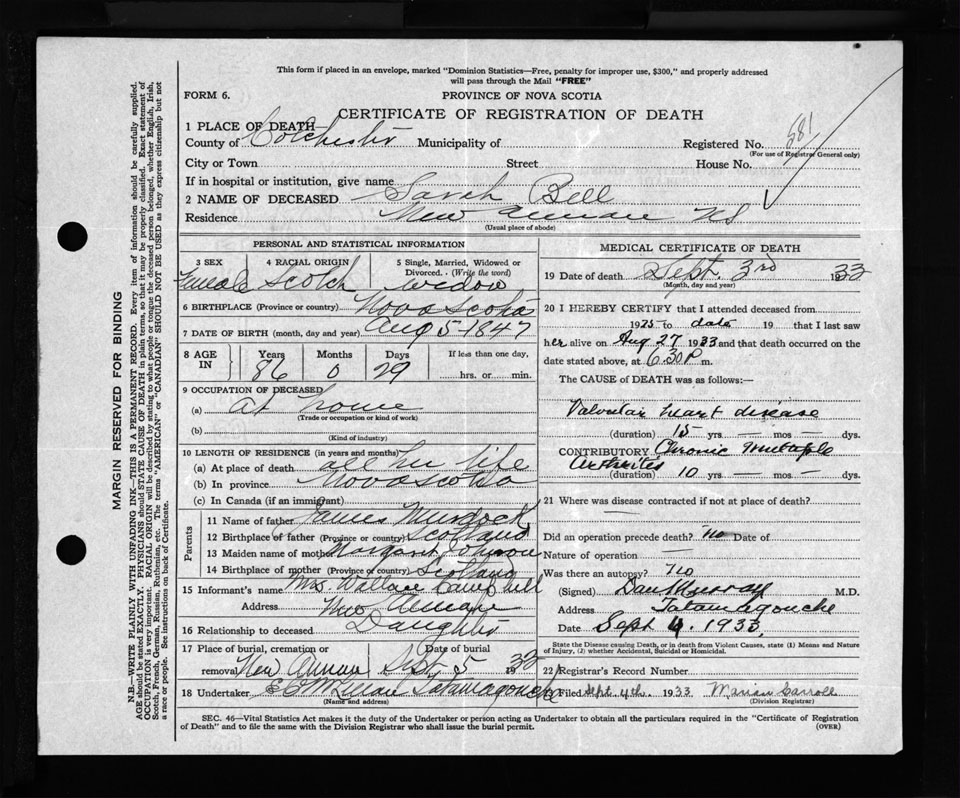 This form if placed in an envelope, marked "Dominion Statistics—Free, penalty for improper use, $300," and properly addressed
will pass through the Mail "FREE"
FORM 6.
PROVINCE OF NOVA SCOTIA
CERTIFICATE OF REGISTRATION OF DEATH
1 PLACE OF DEATH
County of Colchester Municipality of Registered No. 881
(For use of Registrar General only)
City or Town Street House No.
If in hospital or institution, give name
2 NAME OF DECEASED Sarah Bell
Residence New Annan NS
(Usual place of abode)
PERSONAL AND STATISTICAL INFORMATION
3 SEX 4 RACIAL ORIGIN 5 Single, Married, Widowed or
Divorced. (Write the word)
Female Scotch widow
6 BIRTHPLACE (Province or country) Nova Scotia
7 DATE OF BIRTH (month, day and year) Aug 5 1847
8 AGE IN Years Months Days If less than one day,
86 0 29 hrs. or min.
9 OCCUPATION OF DECEASED
(a) at home
(Trade or occupation or kind of work)
(b)
(Kind of industry)
10 LENGTH OF RESIDENCE (in years and months)
(a) At place of death all her life
(b) In province Nova Scotia
(c) In Canada (if an immigrant)
Parents
11 Name of father James Murdock
12 Birthplace of father (Province or country) Scotland
13 Maiden name of mother Margaret Johnson
14 Birthplace of mother (Province or country) Scotland
15 Informant's name Mrs. Wallace Campbell
Address New Annan
16 Relationship to deceased Daughter
17 Place of burial, cremation or Date of burial
removal New Annan Sept. 5 33
18 Undertaker Tatamagouche
(Name and address)
MEDICAL CERTIFICATE OF DEATH
19 Date of death Sept. 3rd 1933
(Month, day and year)
20 I HEREBY CERTIFY that I attended deceased from
1925 to date 19 that I last saw
her alive on Aug 27 1933 and that death occurred on the
date stated above, at 6.30 P m.
The CAUSE of DEATH was as follows:—
Valvular heart disease
(duration) 15 yrs. — mos — dys.
CONTRIBUTORY Chronic Multiple
Arthrites
(duration) 10 yrs. — mos — dys.
21 Where was disease contracted if not at place of death?
Did an operation precede death? no Date of
Nature of operation —
Was there an autopsy? no
(Signed) Dan Murray M.D.
Address Tatamagouche
Date Sept 4. 1933.
State the Disease causing Death, or in death from Violent Causes, state (1) Means and Nature
of Injury, (2) whether Accidental, Suicidal or Homicidal.
22 Registrar's Record Number
Filed Sept. 4th. 1933 Marian Carroll
(Division Registrar)
SEC. 46—Vital Statistics Act makes it the duty of the Undertaker or person acting as Undertaker to obtain all the particulars required in the "Certificate of Registration
of Death" and to file the same with the Division Registrar who shall issue the burial permit.
(OVER)
MARGIN RESERVED FOR BINDING
N.B.—WRITE PLAINLY WITH UNFADING INK—THIS IS A PERMANENT RECORD. Every item of information should be carefully supplied.
AGE should be stated EXACTLY. PHYSICIANS should STATE CAUSE OF DEATH in plain terms, so that it may be properly classified. Exact statement of
OCCUPATION is very important. RACIAL ORIGIN will be described by stating to what people or tongue the deceased person belonged, whether English, Irish,
Scotch, French, German, Russian, Ruthenian, etc. The terms "AMERICAN" or "CANADIAN" SHOULD NOT BE USED as they express citizenship but not
a race or people. See instructions on back of Certificate.